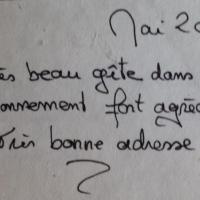 Mai 20
ès beau gîte dans
onnement fort agréa
Très bonne adresse